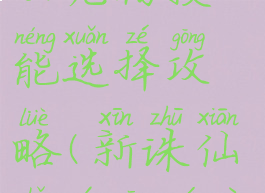 néng xuǎn zé gōng
能选择攻
lüè xīn zhū xiān
略(新诛仙